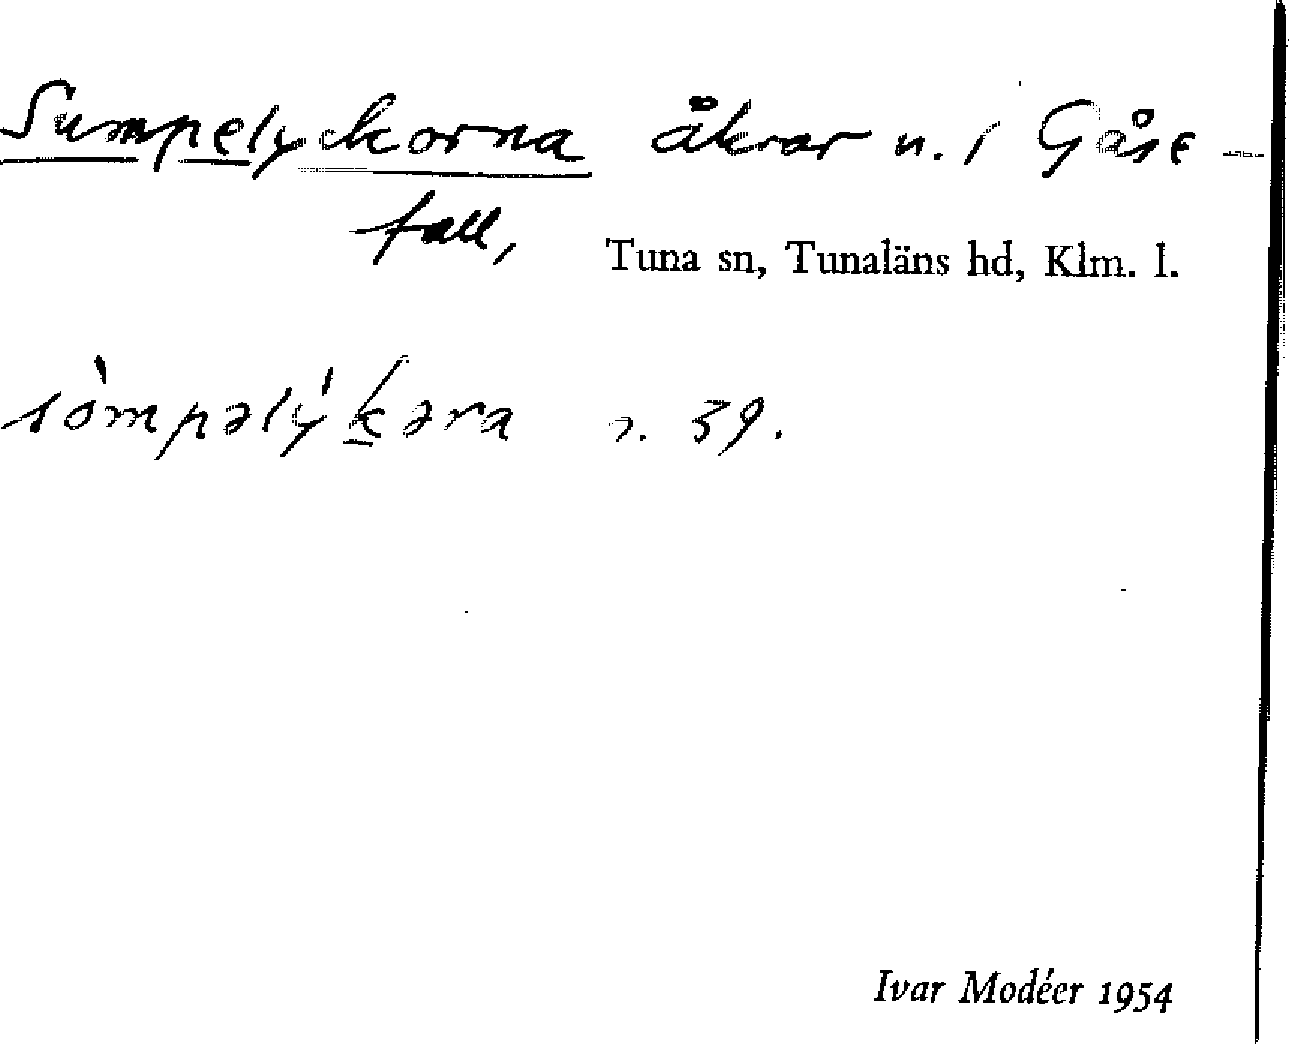 Sumpelyckorna åkrar n. i Gåse-
fall,
Tuna sn, Tunaläns hd, Klm. l.
sòmpəlýk̠əra 39.
Ivar Modéer 1954